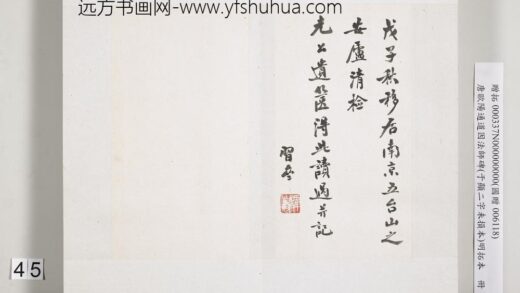 远方书画网-www.yfshuhua.com
戊子秋移居南京五台山之
安廬清檢
先公遺箧得此讀過并記
習冬
贈拓 000337N000000000(國贈 006118)
唐歐陽通道因法師碑(于顯二字未損本)明拓本 冊
45